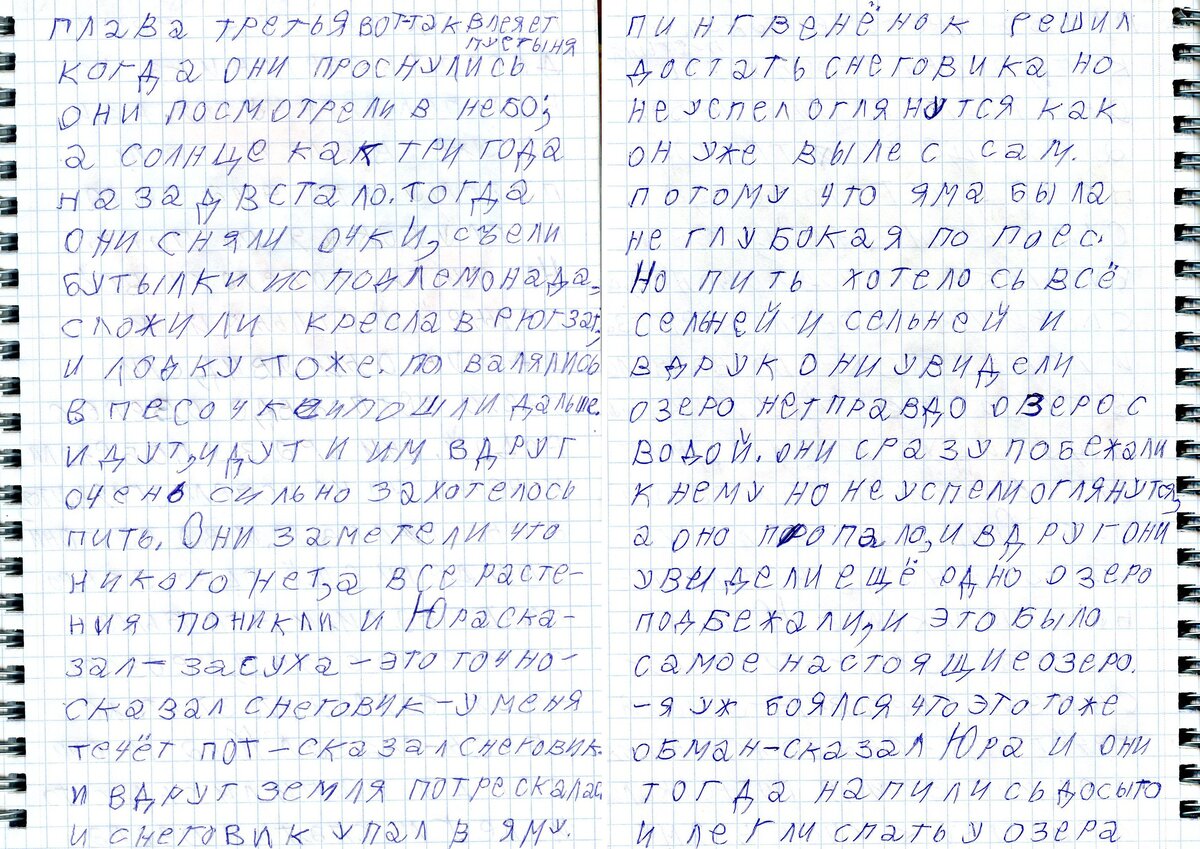 глава третья вот так влеяет
пустыня
когда они проснулись
они посмотрели в небо,
а солнце как три года
назад встало. тогда
они сняли очки, съели
бутылки ис под лемонада,
сложили кресла в рюгзак,
и лодку тоже. по валялись
в песочке и пошли дальше.
идут, идут и им вдруг
очень сильно захотелось
пить. Они заметели что
никого нет, а все расте-
ния поникли и Юра ска-
зал- засуха - это точно-
сказал снеговик - у меня
течёт пот - сказал снеговик.
и вдруг земля потрескалась
и снеговик упал в яму.
пингвенёнок решил
достать снеговика но
не успел оглянутся как
он уже вылес сам.
потому что яма была
не глубокая по поес.
Но пить хотелось всё
сельней и сельней и
вдрук они увидели
озеро нет правдо озеро с
водой. они сразу побежали
к нему но не успели оглянутся,
а оно пропало, и вдруг они
увидели ещё одно озеро
подбежали, и это было
самое настоящие озеро.
-я уж боялся что это тоже
обман-сказал Юра и они
тогда напились досыто
и легли спать у озера